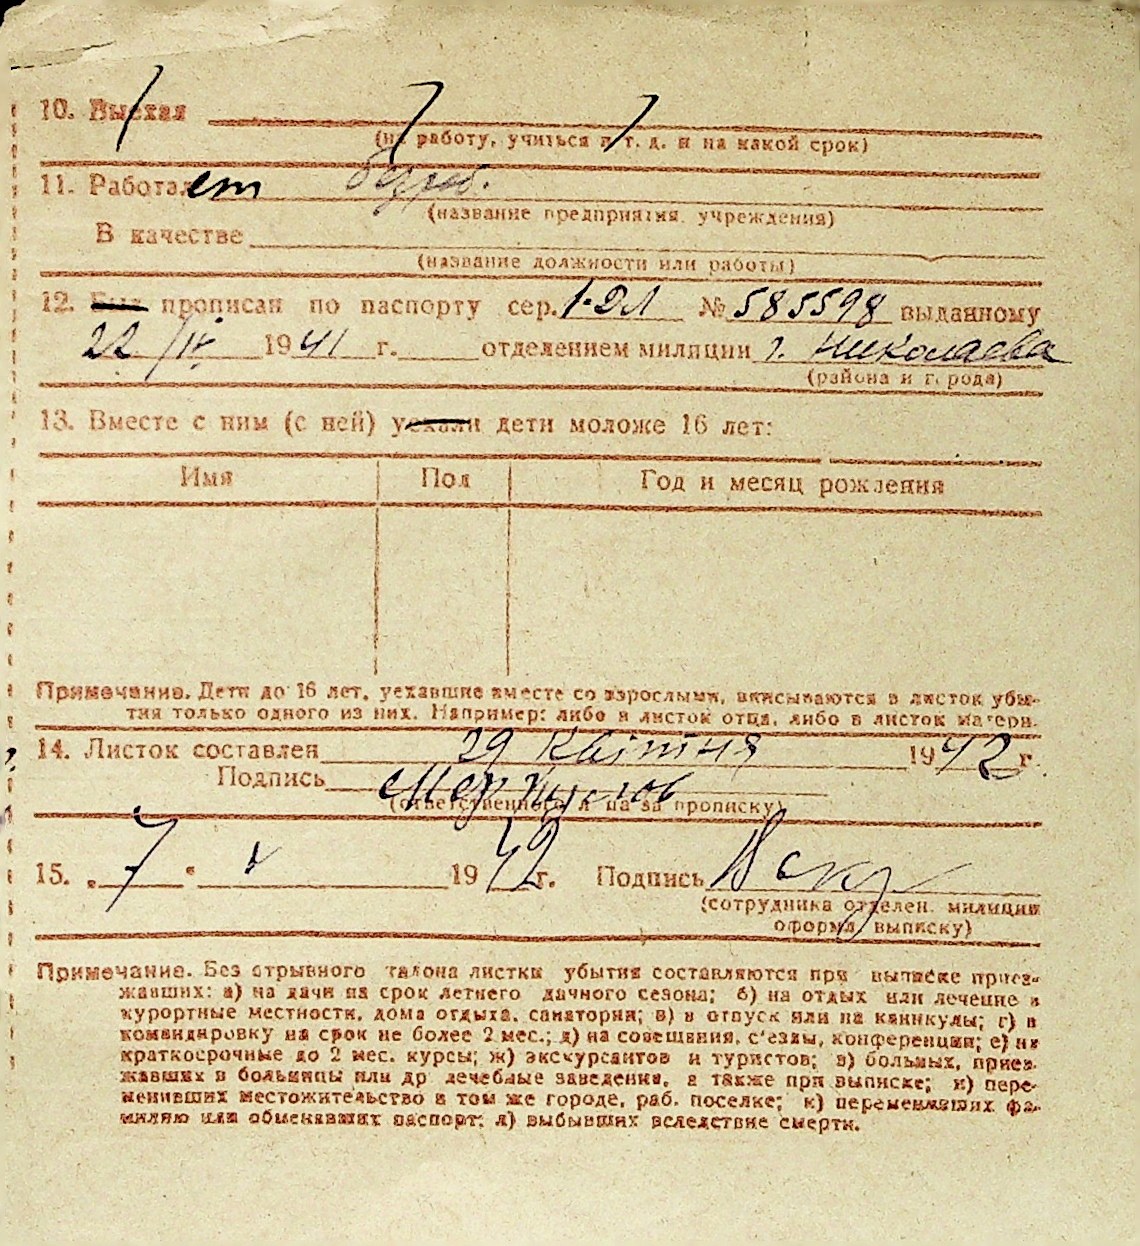 10. Выехал
(на работу, учиться и т. д. и на какой срок)
11. Работает безроб.
(название предприятия, учреждения)
В качестве
(название должности или работы)
12. Был прописан по паспорту сер. № 585598 выданному
22/IV 1941 г. отделением милиции г. Николаева
(района и города)
13. Вместе с ним (с ней) уехали дети моложе 16 лет:
Имя Пол Год и месяц рождения
Примечание. Дети до 16 лет, уехавшие вместе со взрослыми, вписываются в листок убы-
тия только одного из них. Например: либо в листок отца, либо в листок матери.
14. Листок составлен 29 квітня 1942 г.
Подпись
(ответственного лица за прописку)
15. „7" V 1942 г. Подпись
(сотрудника отделен. милиции
оформл выписку)
Примечание. Без отрывного талона листки убытия составляются при выписке приез-
жавших: а) на дачи на срок летнего дачного сезона; б) на отдых или лечение в
курортные местности, дома отдыха, санатории; в) в отпуск или на каникулы; г) в
командировку на срок не более 2 мес.; д) на совещания, с'езды, конференции; е) на
краткосрочные до 2 мес. курсы; ж) экскурсантов и туристов; з) больных, приез-
жавших в больницы или др лечебные заведения, а также при выписке; и) пере-
менивших местожительство в том же городе, раб. поселке; к) переменивших фа-
милию или обменявших паспорт; л) выбывших вследствие смерти.